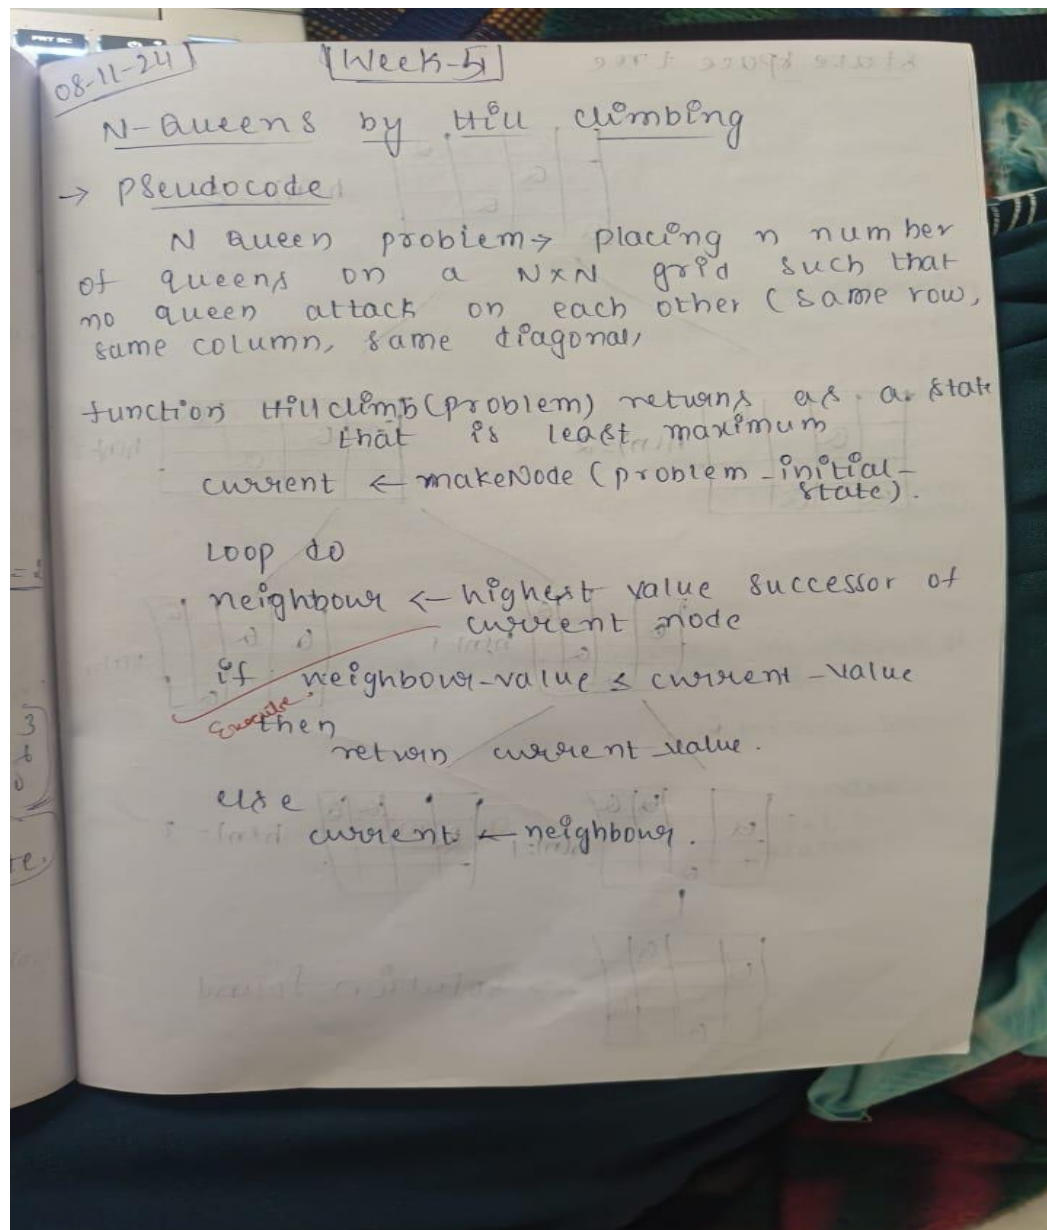 08-11-24
Week-5
N-Queens by Hill climbing
→ Pseudocode
N Queen problem → placing n number
of queens on a N×N grid such that
no queen attack on each other (same row,
same column, same diagonal,
function Hillclimb(problem) returns as a state
that is least maximum
current ← makeNode (problem-initial-
state).
Loop do
neighbour ← highest value successor of
current node
if neighbour-value ≤ current-value
Execute
then
return current value.
else
current ← neighbour.